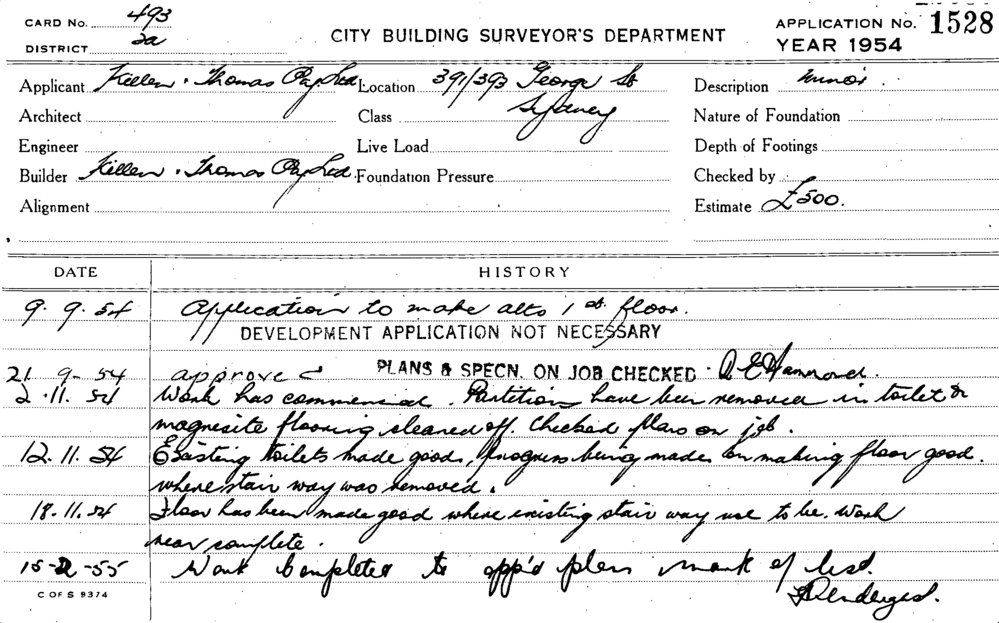 CARD No. 493
DISTRICT 2a
CITY BUILDING SURVEYOR'S DEPARTMENT
APPLICATION No. 1528
YEAR 1954
Applicant Killen & Thomas Pty. Ltd Location 391/393 George St Description minor
Architect Class Sydney Nature of Foundation
Engineer Live Load Depth of Footings
Builder Killen & Thomas Pty Ltd. Foundation Pressure Checked by
Alignment Estimate £500.
DATE HISTORY
9. 9. 54 Application to make alts 1st. floor.
DEVELOPMENT APPLICATION NOT NECESSARY
21. 9 - 54 approved PLANS & SPECN. ON JOB CHECKED
2. 11. 54 Work has commenced. Partition have been removed in toilet &
magnesite flooring cleared off. Checked plans on job.
12. 11. 54 Existing toilets made good, progress being made on making floor good.
where stair way was removed.
18. 11. 54 Floor has been made good where existing stair way use to be. Work
near complete.
15-2-55 Work Completed to app'd plan mark of list.
C OF S 9374